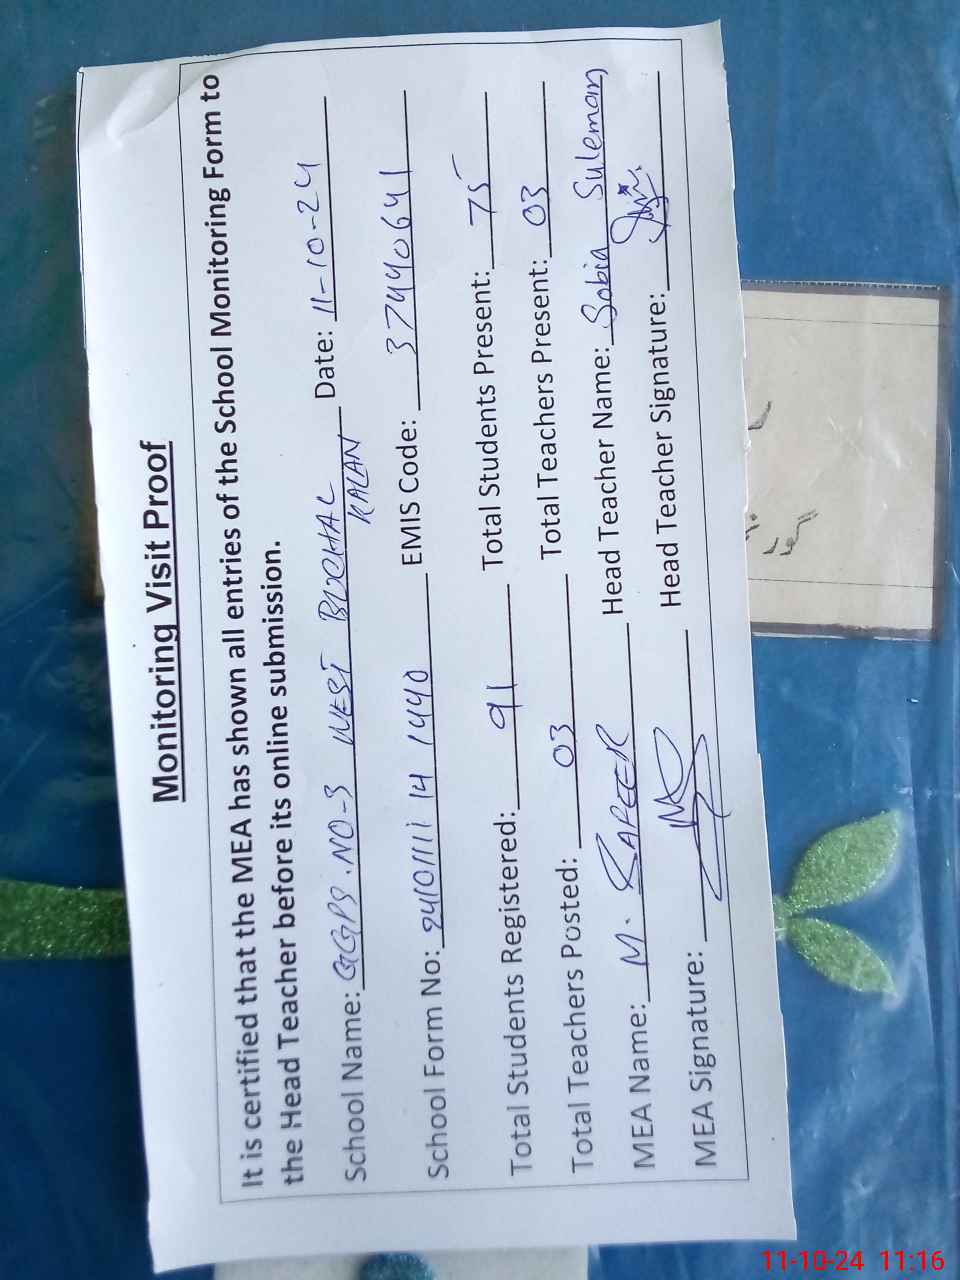 Monitoring Visit Proof
It is certified that the MEA has shown all entries of the School Monitoring Form to
the Head Teacher before its online submission.
School Name: GGPS.NO-3 WEST BUCHAL KALAN Date: 11-10-24
School Form No: 241011114 1440 EMIS Code: 37440641
Total Students Registered: 91 Total Students Present: 75
Total Teachers Posted: 03 Total Teachers Present: 03
MEA Name: M. Head Teacher Name: Sobia Suleman
MEA Signature: Head Teacher Signature:
11-10-24 11:16